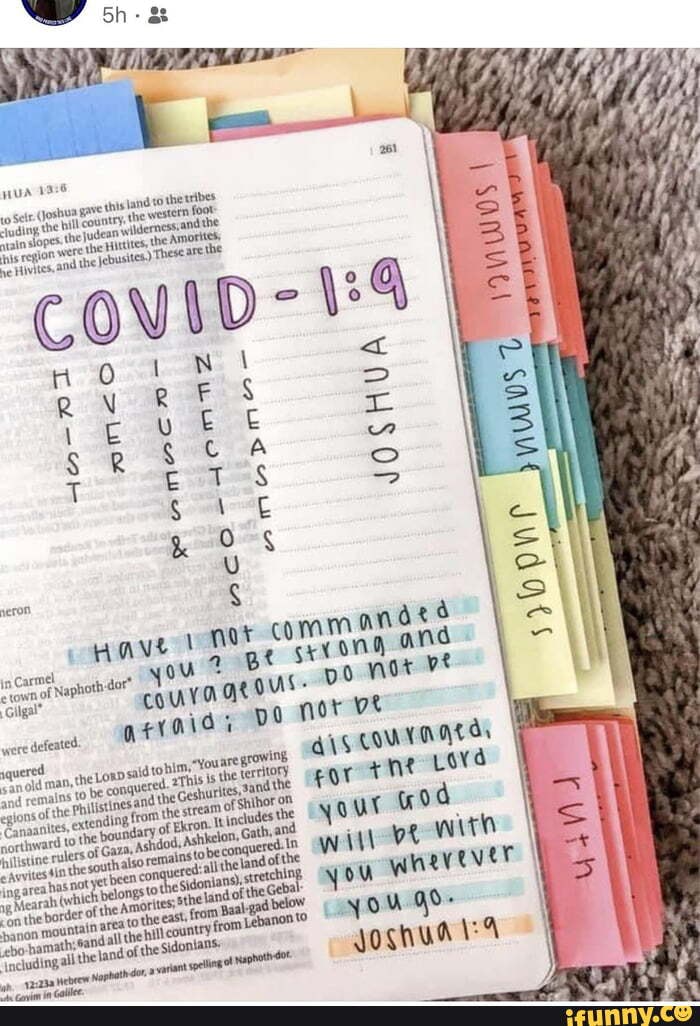 5h ·
261
HUA 13:6
to Seir. (Joshua gave this land to the tribes
cluding the hill country, the western foot-
ntain slopes, the Judean wilderness, and the
this region were the Hittites, the Amorites,
he Hivites, and the Jebusites.) These are the
COVID-1:9
HRIST
OVER
IRUSES &
NFECTIOUS
ISEASES
JOSHUA
neron
in Carmel
e town of Naphoth-dor*
Gilgal*
were defeated.
Have I not commanded
you? Be strong and
courageous. Do not be
afraid; Do not be
discouraged,
for the Lord
your God
will be with
you wherever
you go.
Joshua 1:9
nquered
s an old man, the LORD said to him, "You are growing
and remains to be conquered. 2This is the territory
egions of the Philistines and the Geshurites, 3and the
Canaanites, extending from the stream of Shihor on
northward to the boundary of Ekron. It includes the
hilistine rulers of Gaza, Ashdod, Ashkelon, Gath, and
e Avvites 4in the south also remains to be conquered. In
ing area has not yet been conquered: all the land of the
ng Mearah (which belongs to the Sidonians), stretching
k on the border of the Amorites; 5the land of the Gebal-
ebanon mountain area to the east, from Baal-gad below
Lebo-hamath; 6and all the hill country from Lebanon to
, including all the land of the Sidonians.
12:23a Hebrew Naphath-dor, a variant spelling of Naphoth-dor.
Goyim in Galilee.
1 samuel
1 chronicles
2 samu
judges
ruth
ifunny.co